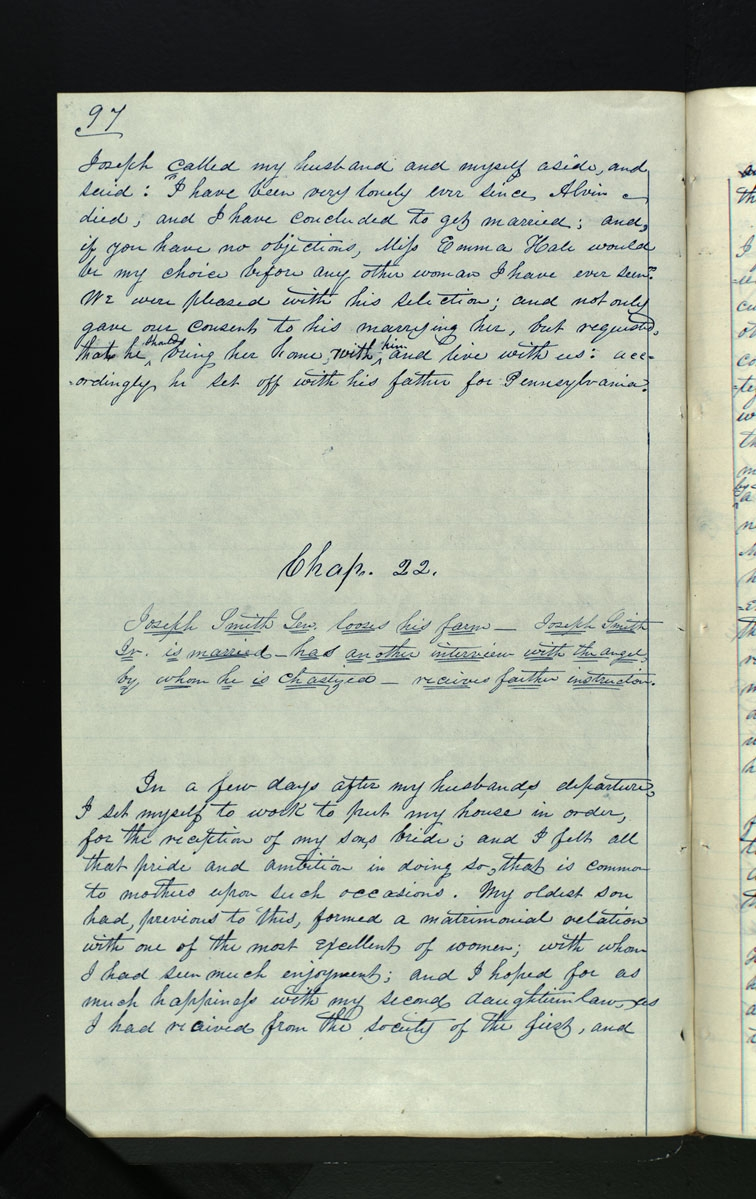 97
Joseph called my husband and myself aside, and
said: "I have been very lonely ever since Alvin
died; and I have concluded to get married; and,
if you have no objections, Miss Emma Hale would
be my choice before any other woman I have ever seen".
We were pleased with his selection; and not only
gave our consent to his marrying her, but requested,
that he should bring her home, with him and live with us: acc-
-ordingly he set off with his father for Pennsylvania.
Chap. 22.
Joseph Smith Sen. looses his farm — Joseph Smith
Jr. is married — has another interview with the angel,
by whom he is chastized — receives farther instruction.
In a few days after my husband's departure,
I set myself to work to put my house in order,
for the reception of my son's bride; and I felt all
that pride and ambition in doing so, that is common
to mothers upon such occasions. My oldest son
had, previous to this, formed a matrimonial relation
with one of the most excellent of women; with whom
I had seen much enjoyment; and I hoped for as
much happiness with my second daughterinlaw, as
I had received from the society of the first, and